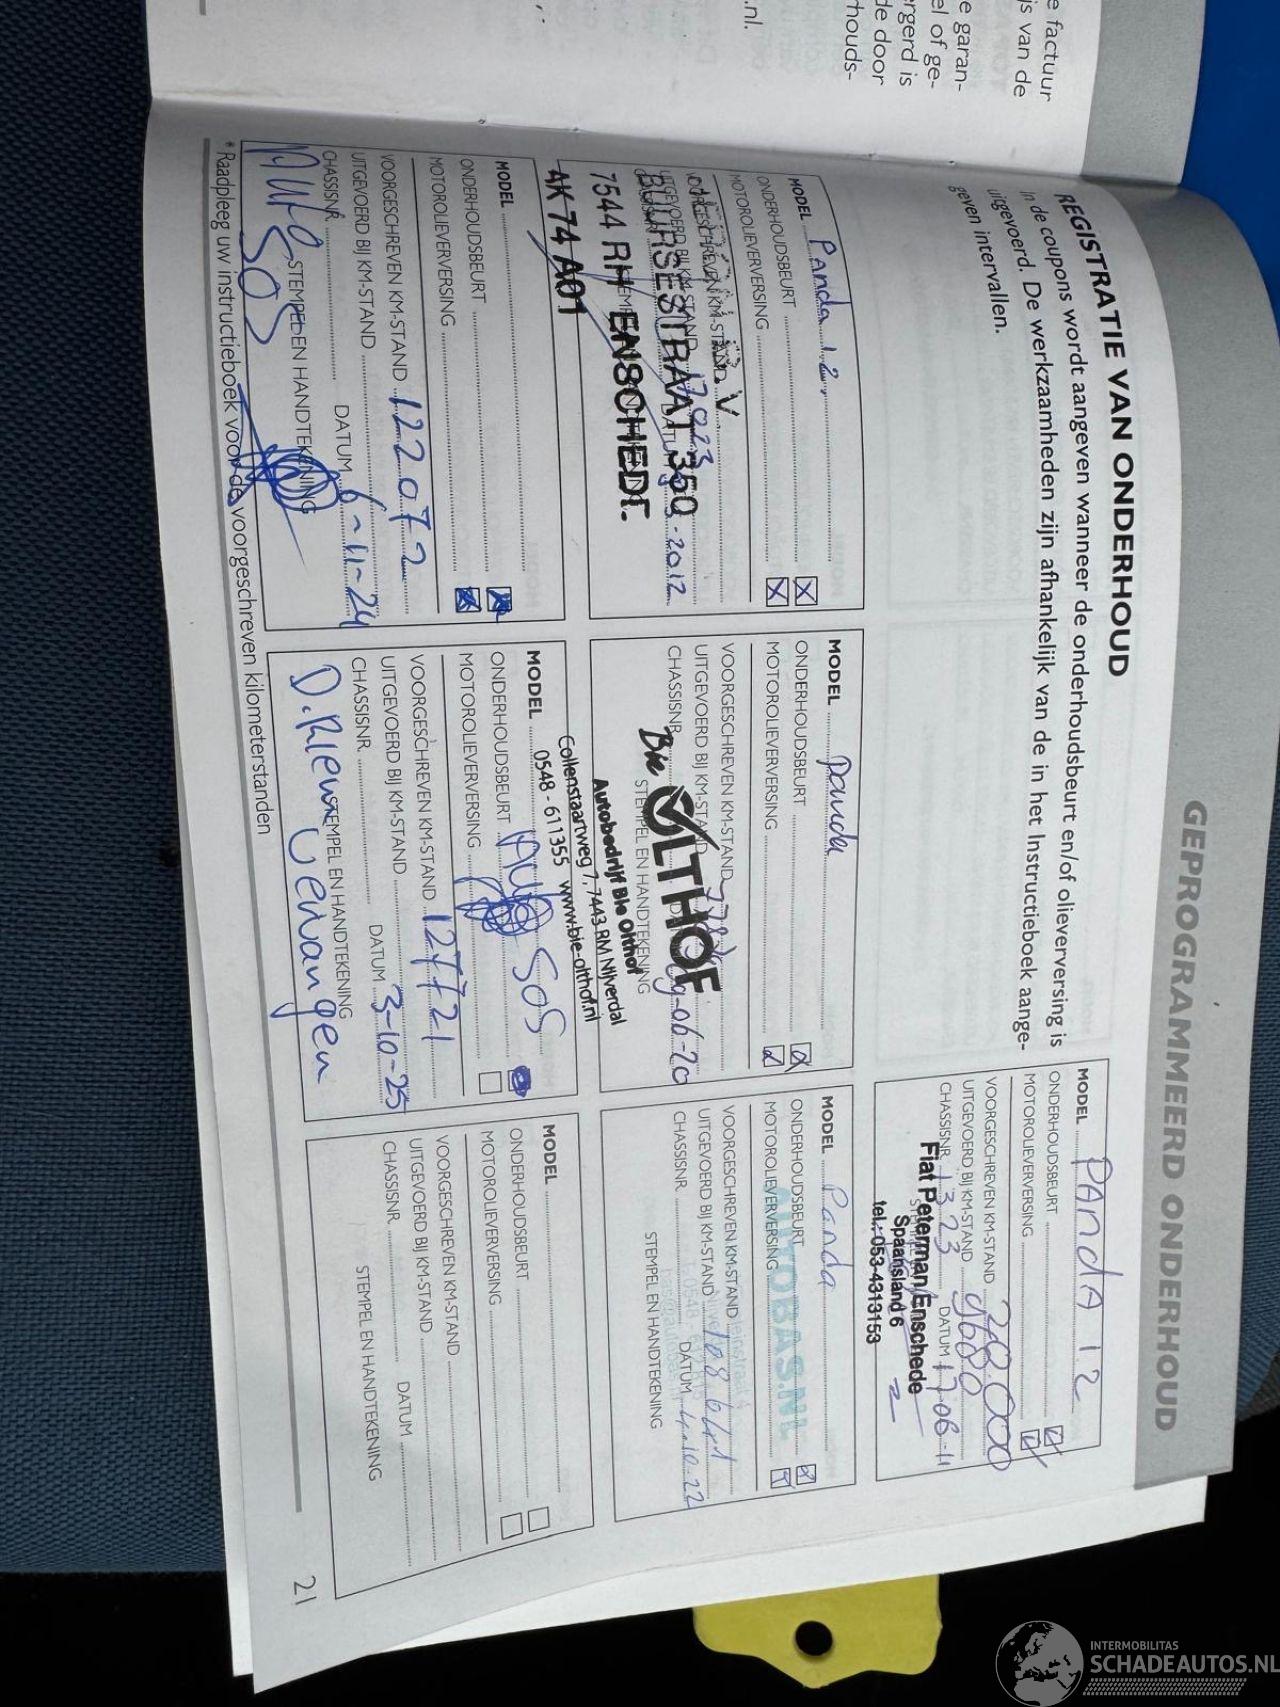 e factuur
js van de
e garan-
el of ge-
ergerd is
de door
rhouds-
nl.
GEPROGRAMMEERD ONDERHOUD
REGISTRATIE VAN ONDERHOUD
In de coupons wordt aangeven wanneer de onderhoudsbeurt en/of olieverversing is
uitgevoerd. De werkzaamheden zijn afhankelijk van de in het Instructieboek aange-
geven intervallen.
MODEL PANdA 1.2
ONDERHOUDSBEURT
MOTOROLIEVERVERSING
VOORGESCHREVEN KM-STAND 20.000
UITGEVOERD BIJ KM-STAND 9680
CHASSISNR. 1323 DATUM 17-06-11
Fiat Peterman/Enschede
Spaansland 6
tel.: 053-4313153
MODEL Panda 1.2.
ONDERHOUDSBEURT
MOTOROLIEVERVERSING
VOORGESCHREVEN KM-STAND
UITGEVOERD BIJ KM-STAND 17923
2012
B.V.
BUURSESTRAAT 350
7544 RH ENSCHEDE
AK 74 A01
MODEL panda
ONDERHOUDSBEURT
MOTOROLIEVERVERSING
VOORGESCHREVEN KM-STAND
UITGEVOERD BIJ KM-STAND
CHASSISNR. -06-20
STEMPEL EN HANDTEKENING
Ble OLTHOF
Autobedrijf Ble Olthof
Collenstaartweg 7, 7443 RM Nijverdal
0548 - 611355 www.ble-olthof.nl
MODEL Panda
ONDERHOUDSBEURT
MOTOROLIEVERVERSING
VOORGESCHREVEN KM-STAND
UITGEVOERD BIJ KM-STAND 108641
CHASSISNR. DATUM 4-10-22
STEMPEL EN HANDTEKENING
AUTOBAS.NL
MODEL
ONDERHOUDSBEURT
MOTOROLIEVERVERSING
VOORGESCHREVEN KM-STAND 122072
UITGEVOERD BIJ KM-STAND
CHASSISNR. DATUM 6-11-24
STEMPEL EN HANDTEKENING
Auto SOS
MODEL
ONDERHOUDSBEURT Auto SOS
MOTOROLIEVERVERSING
VOORGESCHREVEN KM-STAND 127721
UITGEVOERD BIJ KM-STAND
CHASSISNR. DATUM 3-10-25
STEMPEL EN HANDTEKENING
D. Riem vervangen
MODEL
ONDERHOUDSBEURT
MOTOROLIEVERVERSING
VOORGESCHREVEN KM-STAND
UITGEVOERD BIJ KM-STAND
CHASSISNR. DATUM
STEMPEL EN HANDTEKENING
* Raadpleeg uw instructieboek voor de voorgeschreven kilometerstanden
21
INTERMOBILITAS
SCHADEAUTOS.NL